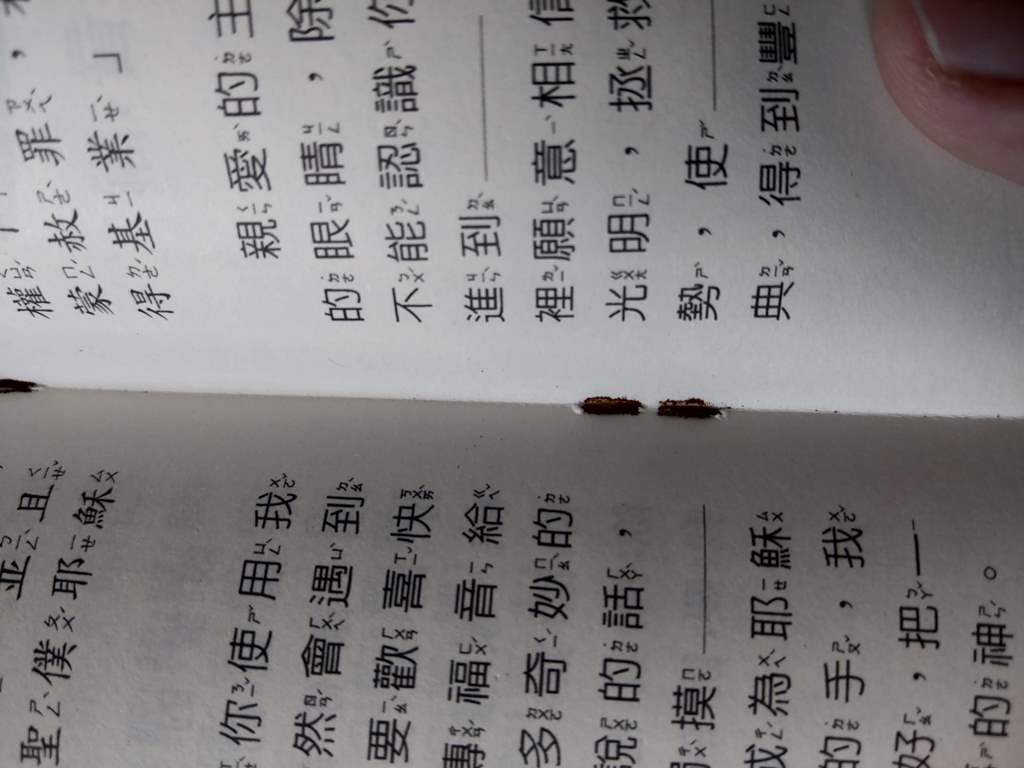 並且
聖僕耶穌
你使用我
然會遇到
要歡喜快
福音給
多奇妙的
說的話，
摸____
成為耶穌
的手，我
好，把一
的神。
權
蒙赦罪，
得基業」
親愛的主
的眼睛，除
不能認識你
進到____
裡願意相信
光明，拯救
勢，使____
典，得到豐